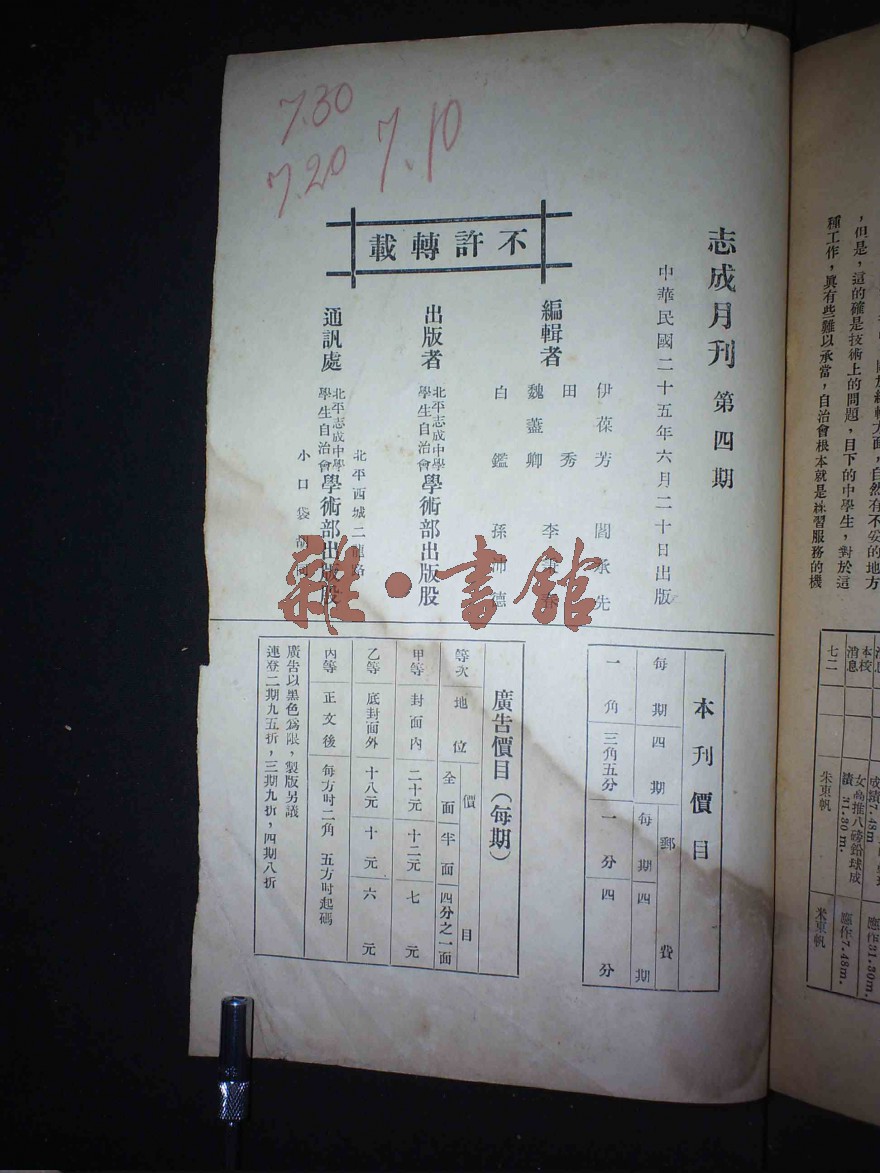 7.30
7.20
7.10
志成月刊 第四期
中華民國二十五年六月二十日出版
不許轉載
編輯者
伊葆芳 閻承先
田秀
魏藎卿 李
白鑑 孫沛德
出版者
北平志成中學
學生自治會
學術部出版股
通訊處
北平志成中學
學生自治會
學術部出版股
北平西城二龍路
小口袋胡同
雜·書館
本刊價目
每期 四期 郵費
每期 四期
一角 三角五分 一分 四分
廣告價目(每期)
等次 地位 價目
全面 半面 四分之一面
甲等 封面內 二十元 十二元 七元
乙等 底封面外 十八元 十元 六元
丙等 正文後 每方吋二角 五方吋起碼
廣告以黑色為限,製版另議
連登二期九五折,三期九折,四期八折
自然有不妥的地方
,但是,這的確是技術上的問題,目下的中學生,對於這
種工作,眞有些難以承當,自治會根本就是練習服務的機
本校
消息
女高推八磅鉛球成
績31.80m.
應作7.48m.
七二
朱東帆
米東帆